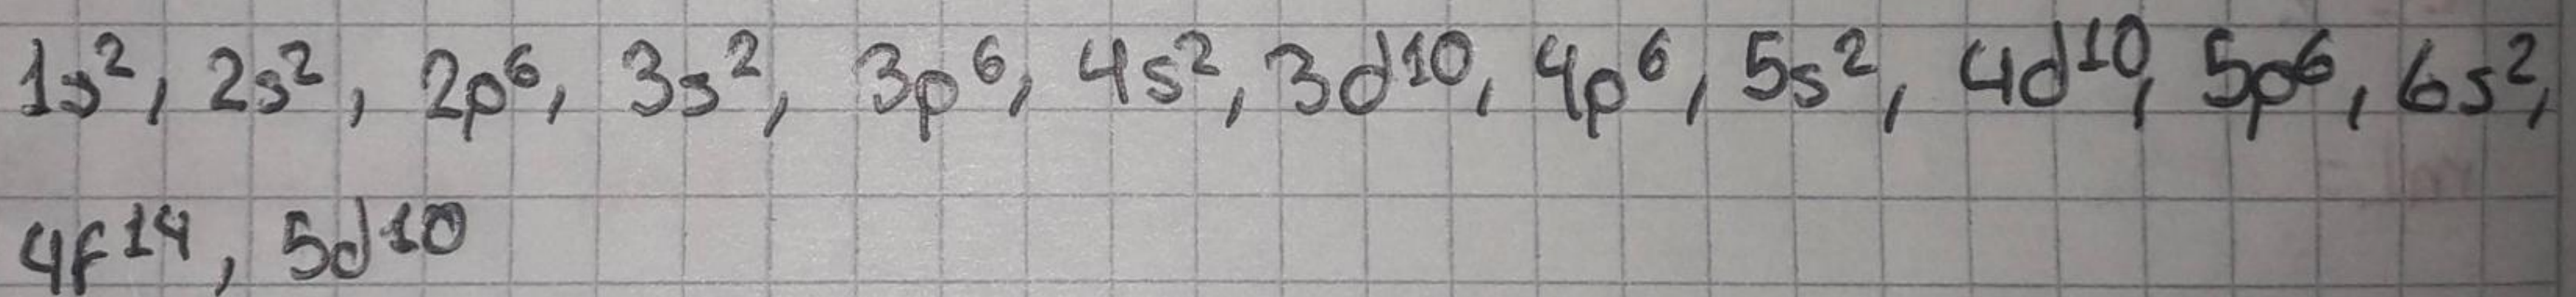 1s², 2s², 2p⁶, 3s², 3p⁶, 4s², 3d¹⁰, 4p⁶, 5s², 4d¹⁰, 5p⁶, 6s²,
4f¹⁴, 5d¹⁰